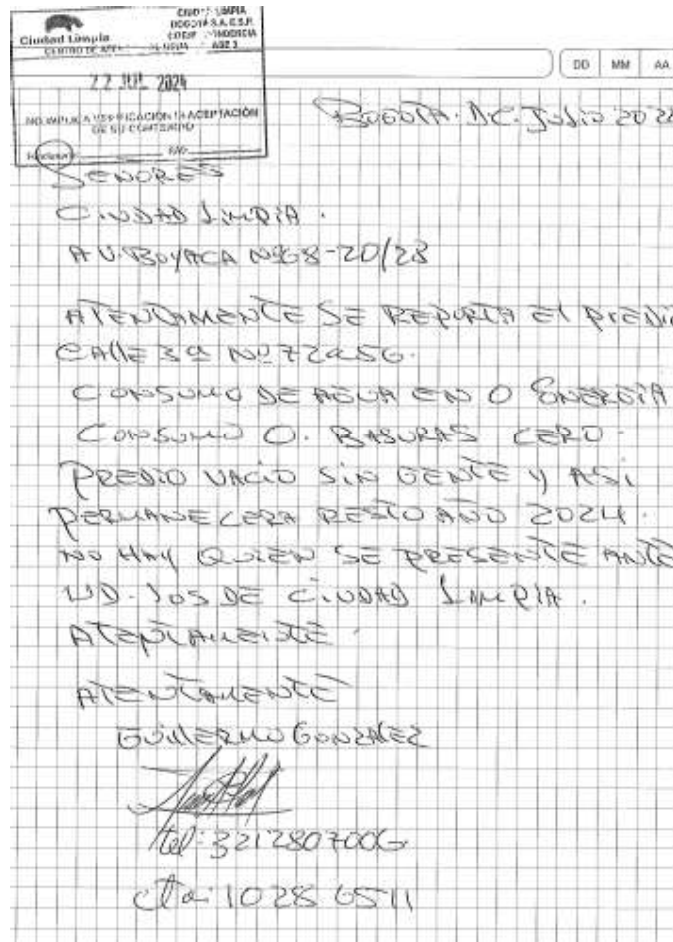 Ciudad Limpia
CIUDAD LIMPIA
BOGOTÁ S.A. E.S.P.
22 JUL 2024
NO IMPLICA VERIFICACIÓN NI ACEPTACIÓN
DE SU CONTENIDO
DD MM AA
BOGOTA. D.C. JULIO 202
SEÑORES
CIUDAD LIMPIA.
AV. BOYACA Nº 6B-20/28
ATENTAMENTE SE REPORTA El PREDI
CAllE 3a Nº 72a56.
CONSUMO DE AGUA EN O ENERGIA
CONSUMO O. BASURAS CERO-
PREDIO VACIO SIN GENTE Y ASI
PERMANECERA RESTO AÑO 2024.
NO HAY QUIEN SE PRESENTE ANTE
UD. los DE CIUDAD LIMPIA.
ATENTAMENTE.
ATENTAMENTE
GUIllERMO GONZALEZ
tel: 3212807006
cta: 1028 6511